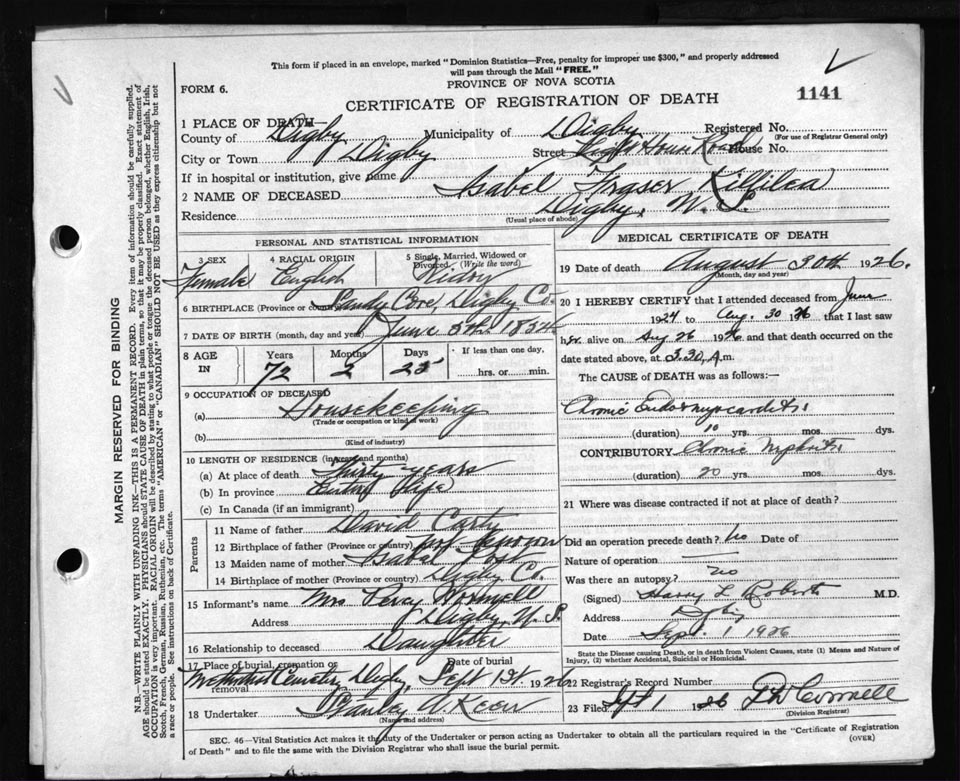 This form if placed in an envelope, marked "Dominion Statistics—Free, penalty for improper use $300," and properly addressed
will pass through the Mail "FREE."
PROVINCE OF NOVA SCOTIA
FORM 6.
CERTIFICATE OF REGISTRATION OF DEATH
1141
1 PLACE OF DEATH—
County of Digby Municipality of Digby Registered No.
(For use of Registrar General only)
City or Town Digby Street Light House Road House No.
If in hospital or institution, give name
2 NAME OF DECEASED Isabel Fraser Killilea
Residence Digby, N. S.
(Usual place of abode)
PERSONAL AND STATISTICAL INFORMATION
3 SEX Female
4 RACIAL ORIGIN English
5 Single, Married, Widowed or Divorced (Write the word)
6 BIRTHPLACE (Province or country) Sandy Cove, Digby Co.
7 DATE OF BIRTH (month, day and year) June 5th 1854
8 AGE IN Years 72 Months 2 Days 25 If less than one day, hrs. or min.
9 OCCUPATION OF DECEASED
(a) Housekeeping
(Trade or occupation or kind of work)
(b)
(Kind of industry)
10 LENGTH OF RESIDENCE (in years and months)
(a) At place of death Thirty years
(b) In province Entire Life
(c) In Canada (if an immigrant)
Parents
11 Name of father David Carty
12 Birthplace of father (Province or country) not known
13 Maiden name of mother Isabel
14 Birthplace of mother (Province or country) Digby Co.
15 Informant's name Mrs Percy Wormell
Address Digby, N. S.
16 Relationship to deceased Daughter
17 Place of burial, cremation or removal Methodist Cemetery Digby Date of burial Sept 1st. 1926
18 Undertaker Stanley W. Keen
(Name and address)
MEDICAL CERTIFICATE OF DEATH
19 Date of death August 30th 1926.
(Month, day and year)
20 I HEREBY CERTIFY that I attended deceased from June
1924 to Aug. 30 1926 that I last saw
her alive on Aug 26 1926 and that death occurred on the
date stated above, at 3.30 A.m.
The CAUSE OF DEATH was as follows:—
Cronic Endo & myocarditis
(duration) 10 yrs. mos. dys.
CONTRIBUTORY Cronic Nephritis
(duration) 20 yrs. mos. dys.
21 Where was disease contracted if not at place of death?
Did an operation precede death? No Date of
Nature of operation
Was there an autopsy? no
(Signed) Harry L Roberts M.D.
Address Digby
Date Sept. 1 1926
State the Disease causing Death, or in death from Violent Causes, state (1) Means and Nature of
Injury, (2) whether Accidental, Suicidal or Homicidal.
22 Registrar's Record Number
23 Filed Sept 1 1926
(Division Registrar)
SEC. 46—Vital Statistics Act makes it the duty of the Undertaker or person acting as Undertaker to obtain all the particulars required in the "Certificate of Registration
of Death" and to file the same with the Division Registrar who shall issue the burial permit.
(OVER)
MARGIN RESERVED FOR BINDING
N.B.—WRITE PLAINLY WITH UNFADING INK—THIS IS A PERMANENT RECORD. Every item of information should be carefully supplied.
AGE should be stated EXACTLY. PHYSICIANS should STATE CAUSE OF DEATH in plain terms, so that it may be properly classified. Exact statement of
OCCUPATION is very important. RACIAL ORIGIN will be described by stating to what people or tongue the deceased person belonged, whether English, Irish,
Scotch, French, German, Russian, Ruthenian, etc. The terms "AMERICAN" or "CANADIAN" SHOULD NOT BE USED as they express citizenship but not
a race or people. See instructions on back of Certificate.